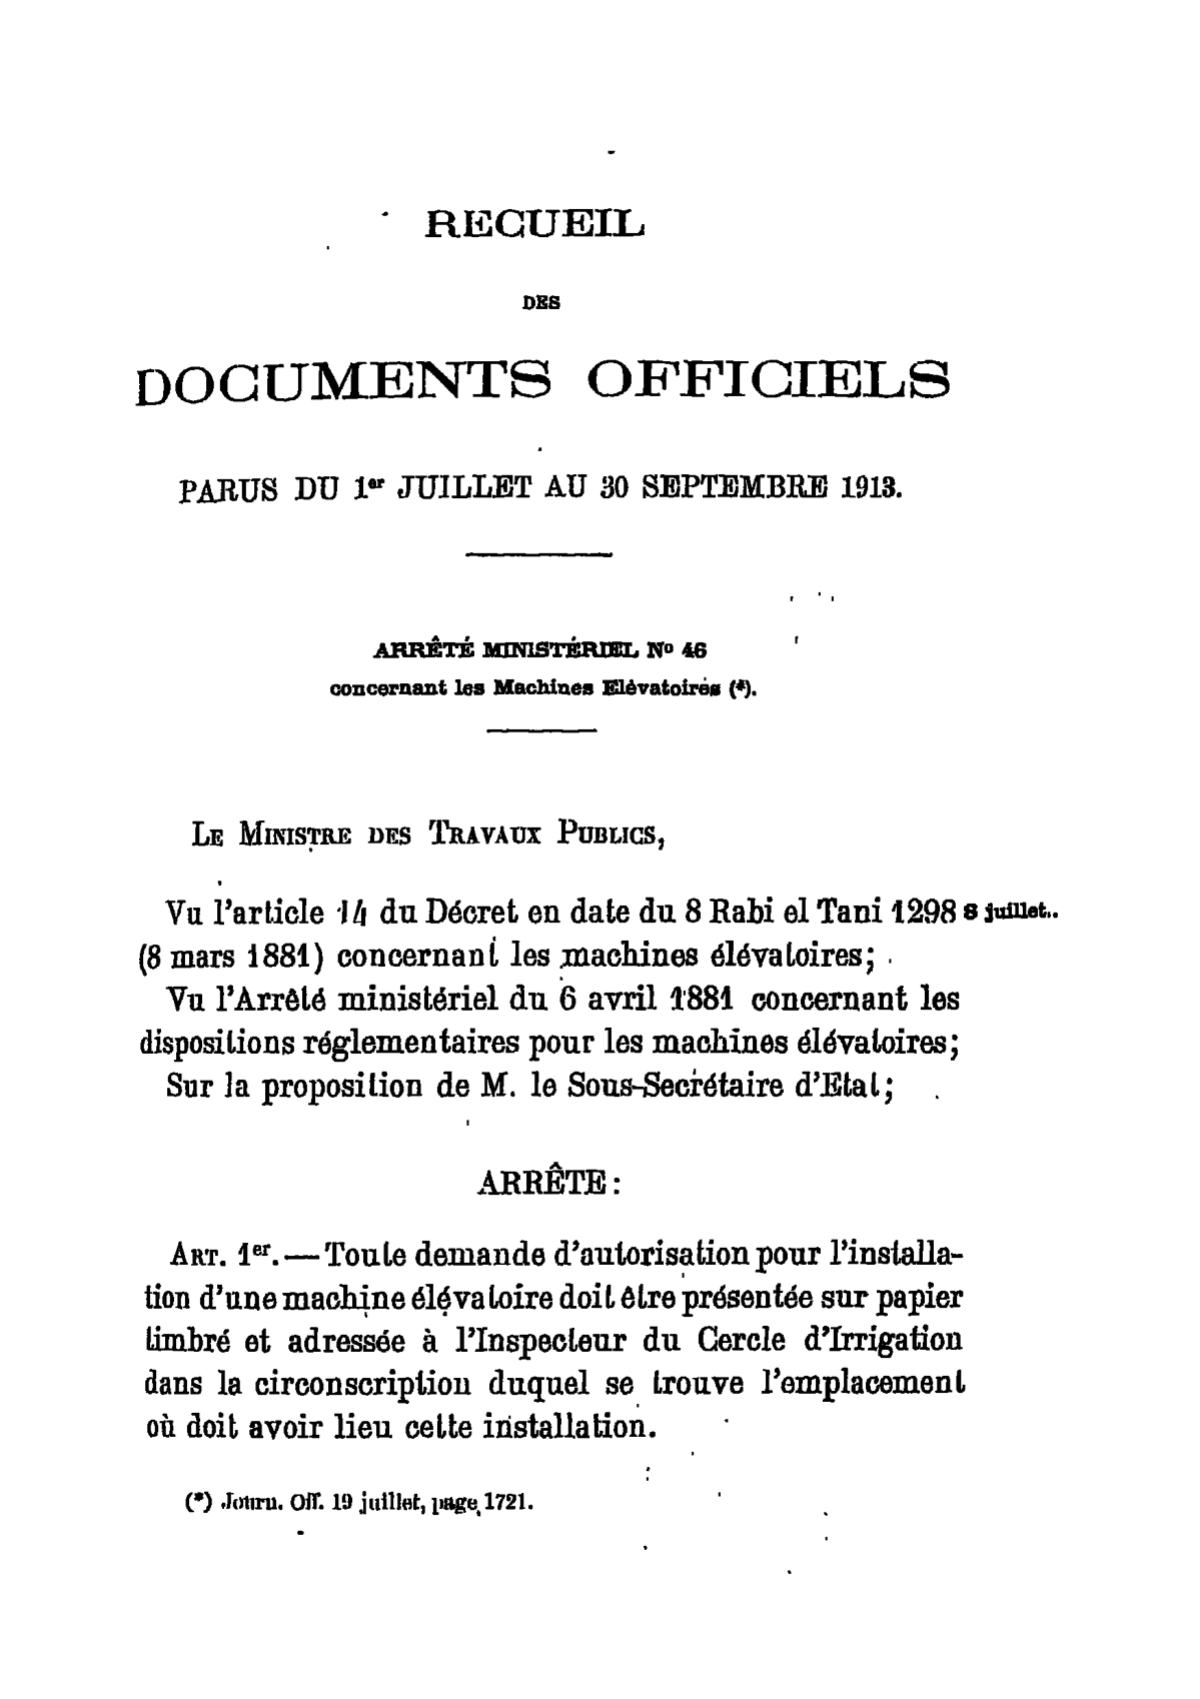 RECUEIL
DES
DOCUMENTS OFFICIELS
PARUS DU 1er JUILLET AU 30 SEPTEMBRE 1913.
ARRÊTÉ MINISTÉRIEL No 46
concernant les Machines Elévatoires (*).
LE MINISTRE DES TRAVAUX PUBLICS,
Vu l'article 14 du Décret en date du 8 Rabi el Tani 1298 8 juillet.
(8 mars 1881) concernant les machines élévatoires;
Vu l'Arrêté ministériel du 6 avril 1881 concernant les
dispositions réglementaires pour les machines élévatoires;
Sur la proposition de M. le Sous-Secrétaire d'Etat;
ARRÊTE:
ART. 1er.—Toute demande d'autorisation pour l'installa-
tion d'une machine élévatoire doit être présentée sur papier
timbré et adressée à l'Inspecteur du Cercle d'Irrigation
dans la circonscription duquel se trouve l'emplacement
où doit avoir lieu cette installation.
(*) Journ. Off. 19 juillet, page 1721.